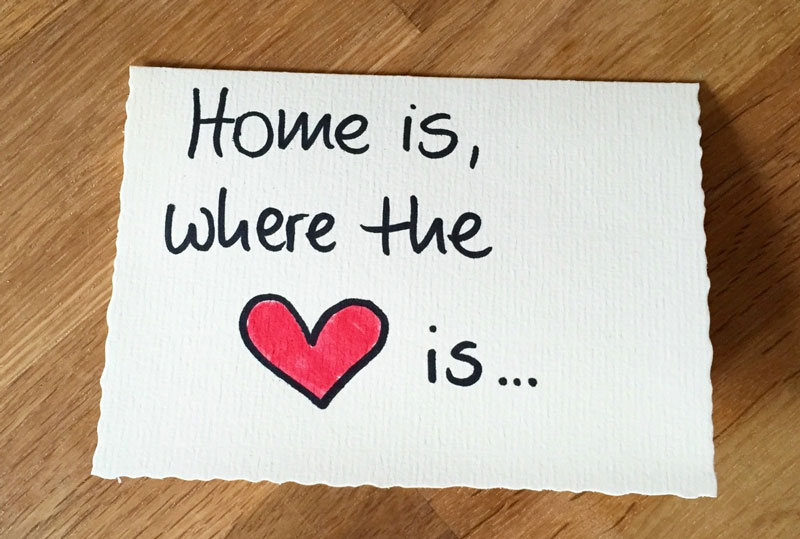 Home is,
where the
❤ is...